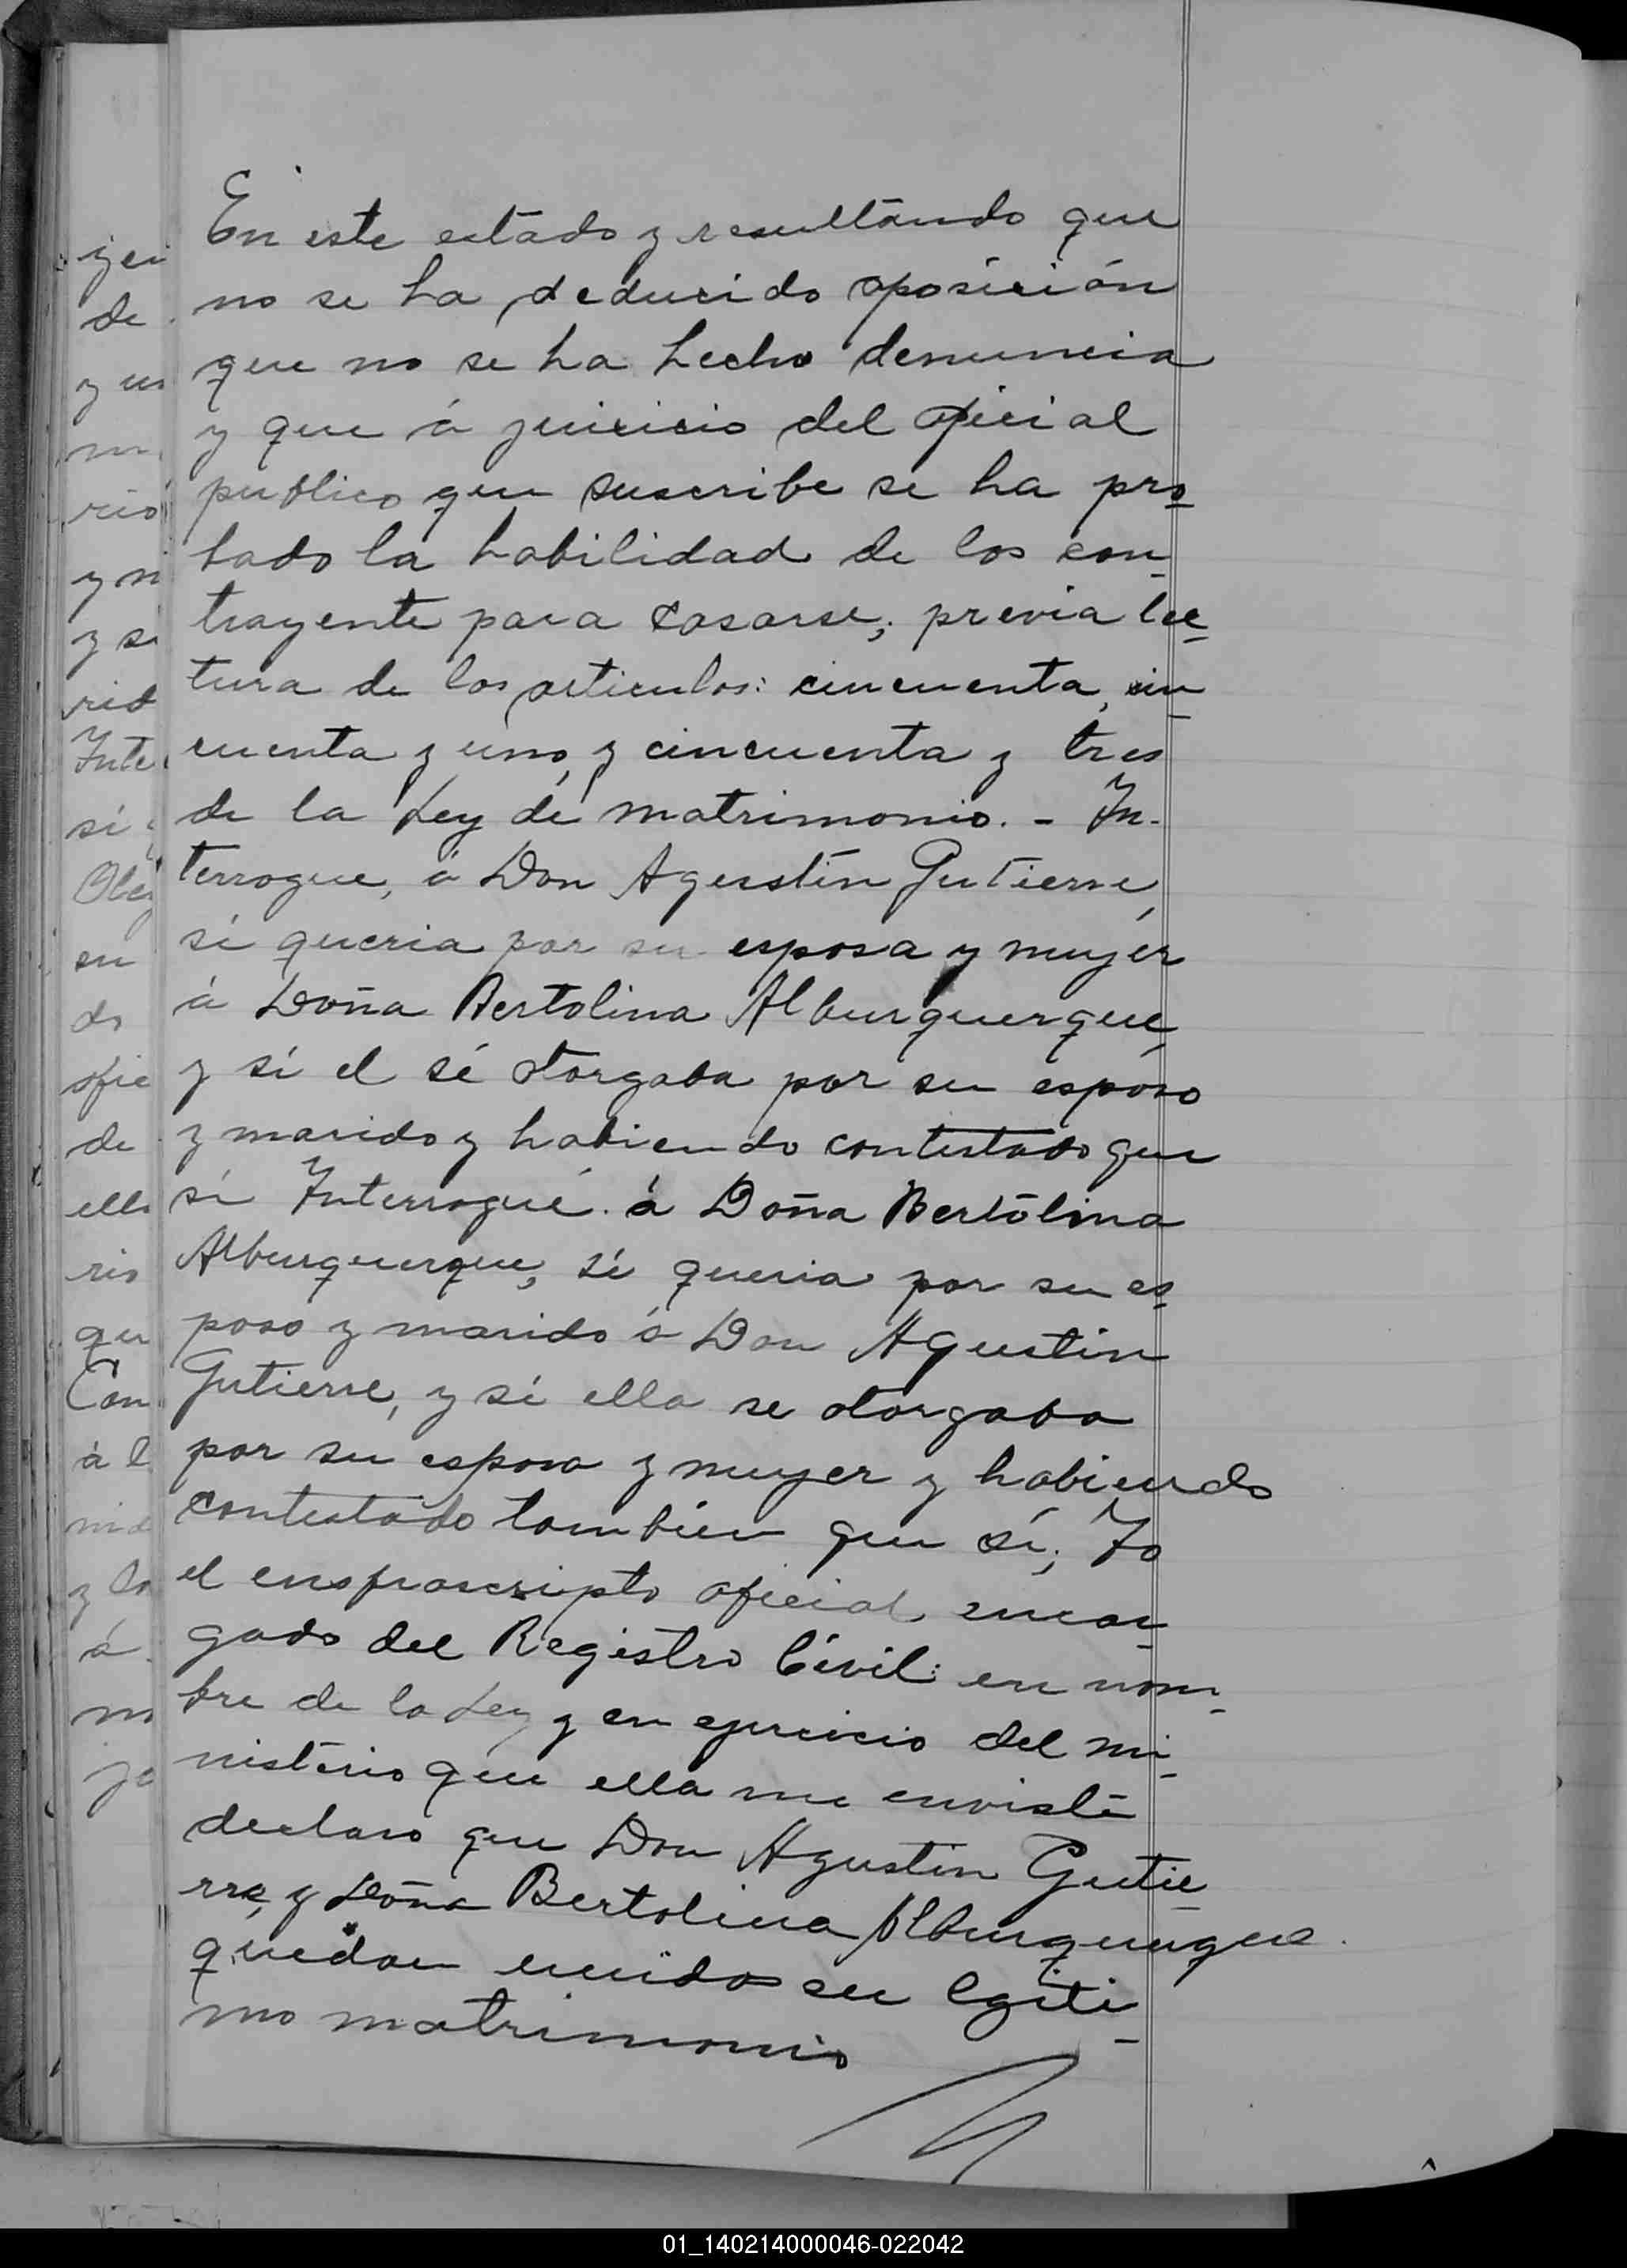 En este estado y resultando que
no se ha deducido oposición
que no se ha hecho denuncia
y que á juicicio del oficial
publico que suscribe se ha pro
bado la habilidad de los con
trayente para casarse, previa lec
tura de los articulos: cincuenta, cin
cuenta y uno, y cincuenta y tres
de la Ley de matrimonio. - In.
terrogue, á Don Agustín Gutierre,
si queria por su esposa y mujer
á Doña Bertolina Alburquerque,
y si el sé otorgaba por su esposo
y marido y habiendo contestado que
si Interrogué. á Doña Bertolina
Alburquerque, si queria por su es
poso y marido á Don Agustin
Gutierre, y si ella se otorgaba
por su esposa y mujer y habiendo
contestado tambien que si; Yo
el ensfrascripto oficial encar
gado del Registro Civil: en nom
bre de la Ley y en ejercicio del mi
nisterio que ella me enviste
declaro que Don Agustin Gutie
rre, y Doña Bertolina Alburquerque.
quedan unidos en lgiti
mo matrimonio
yei
de
y un
m
rio
y n
y se
rid
Inte
si
Obli
en
do
ofic
de
ello
rio
que
Con
á l
y lo
á
m
01_140214000046-022042